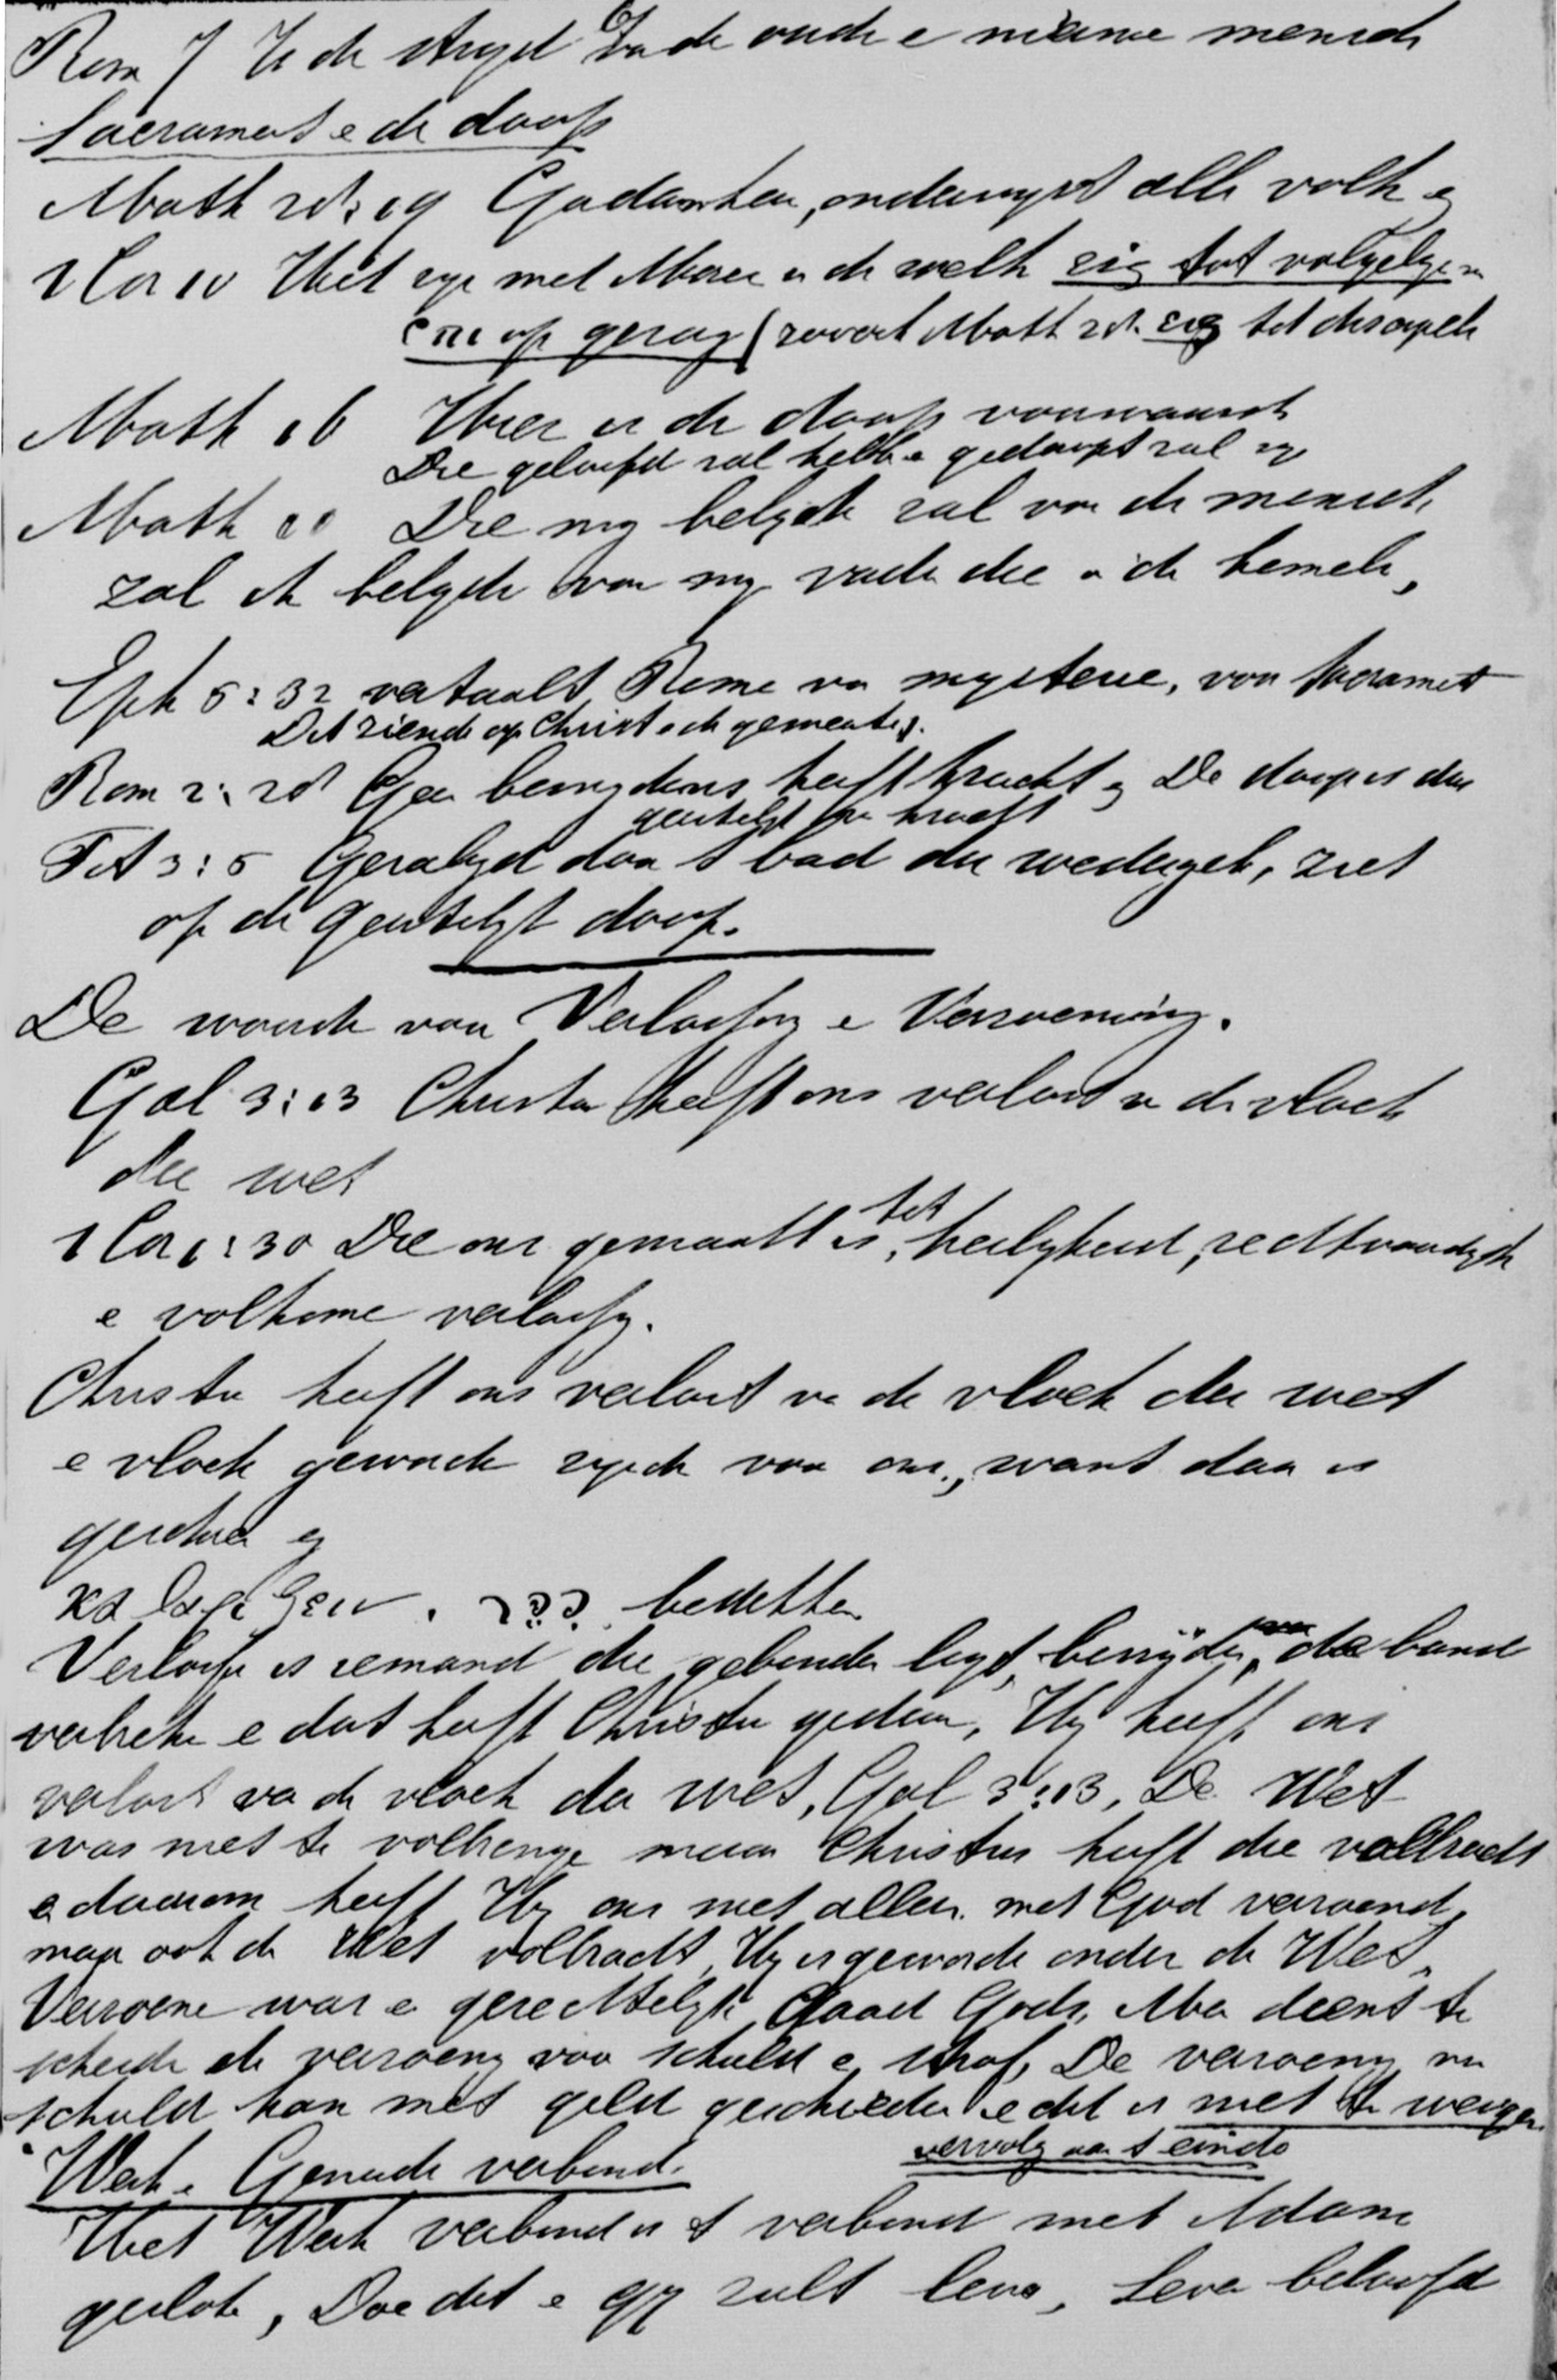 Rom 7 Is de strijd va de oude e nieuwe mensch
Sacrament e de doop
Math 28:19 Gadanhen, onderwyst alle volk e
1 Cor 10 Het zy met Mozes is de welk zig tot volgelge
op gezag (zoowel Math 28 zig tot discipele
Math 16 Hier is de doop voorwaarde
Die geloofd zal hebbe gedoopt zal zy
Math 10 Die my belyde zal voor de mensch
zal ik belyde voor my vade die i de hemele,
Eph 5:32 vertaalt Rome va mysterie, voor Sacrament
Dit ziende op Christ e de gemeente.
Rom 2:28 Gee besnydenis heeft kracht, De doop is dus
geestelyk kracht
Tit 3:5 Gezaligd door 't bad der wedergeb, ziet
op de Geestelyk doop.
De woorde van Verlossing e Verzoening.
Gal 3:13 Christu heeft ons verlost va de vloek
der wet
1 Cor 1:30 Die ons gemaakt is, tot heiligheid, rechtvaardigh
e volkome verlossg.
Christu heeft ons verlost va de vloek der wet
e vloek geworde zynde voor ons, want daar is
geschreve
bedekken
Verlosse is iemand die gebonden ligt, bevrijden, de band
verbreke e dat heeft Christu gedaan, Hy heeft ons
verlost va de vloek der wet, Gal 3:13, De Wet
was niet te volbrenge maar Christus heeft die volbracht
e daarom heeft Hy ons niet alleen met God verzoend,
maar ook de Wet volbracht, Hy is geworde onder de Wet.
Verzoene was e gerechtelyke daad Gods, Me dient te
scheide de verzoeng voor schuld e straf, De verzoeng va
schuld kan met geld geschieden e dit is niet te weiger
vervolg aan 't einde
Werk e Genade verbond.
Het Werk verbond is 't verbond met Adam
geslote, Doe dit e gy zult leve, Leve beloofd